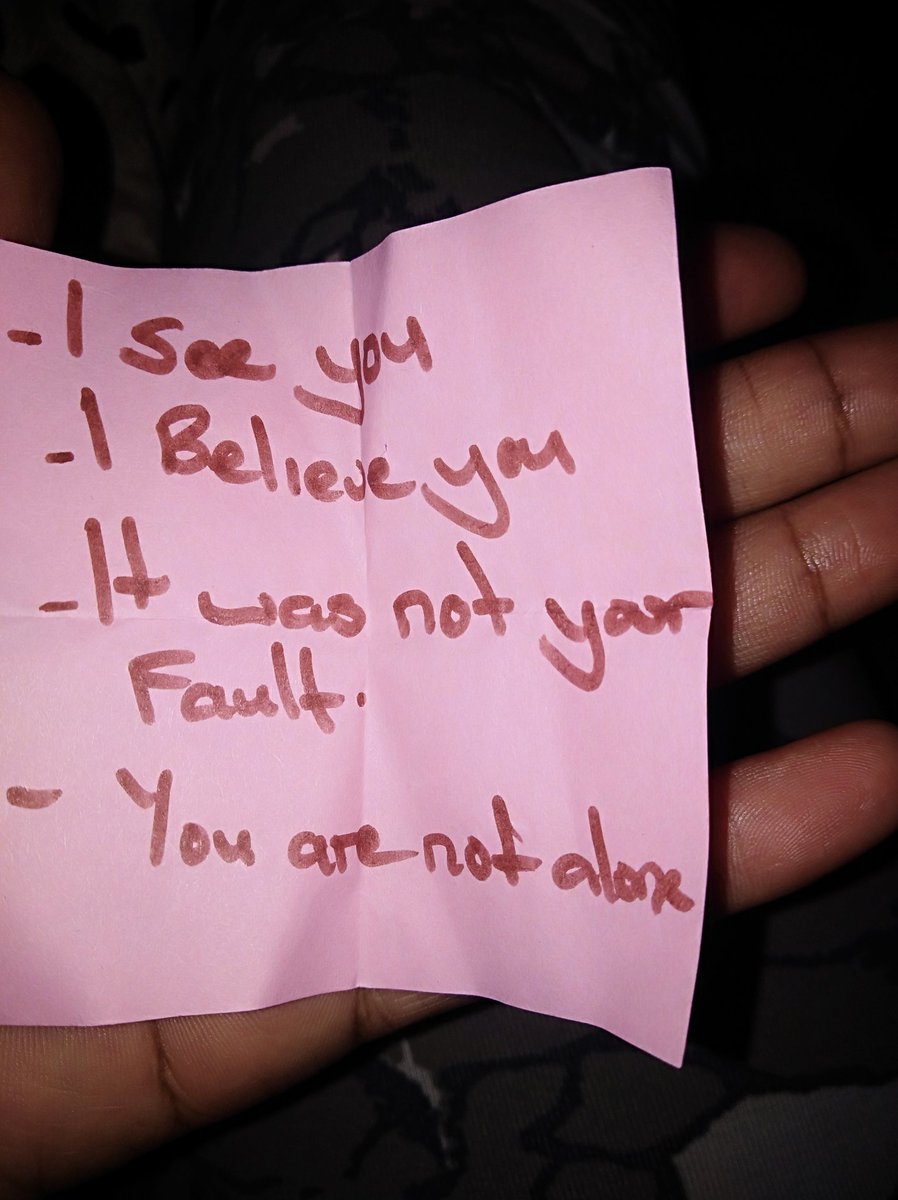 - I See you
- I Believe you
- It was not your
Fault.
- You are not alone